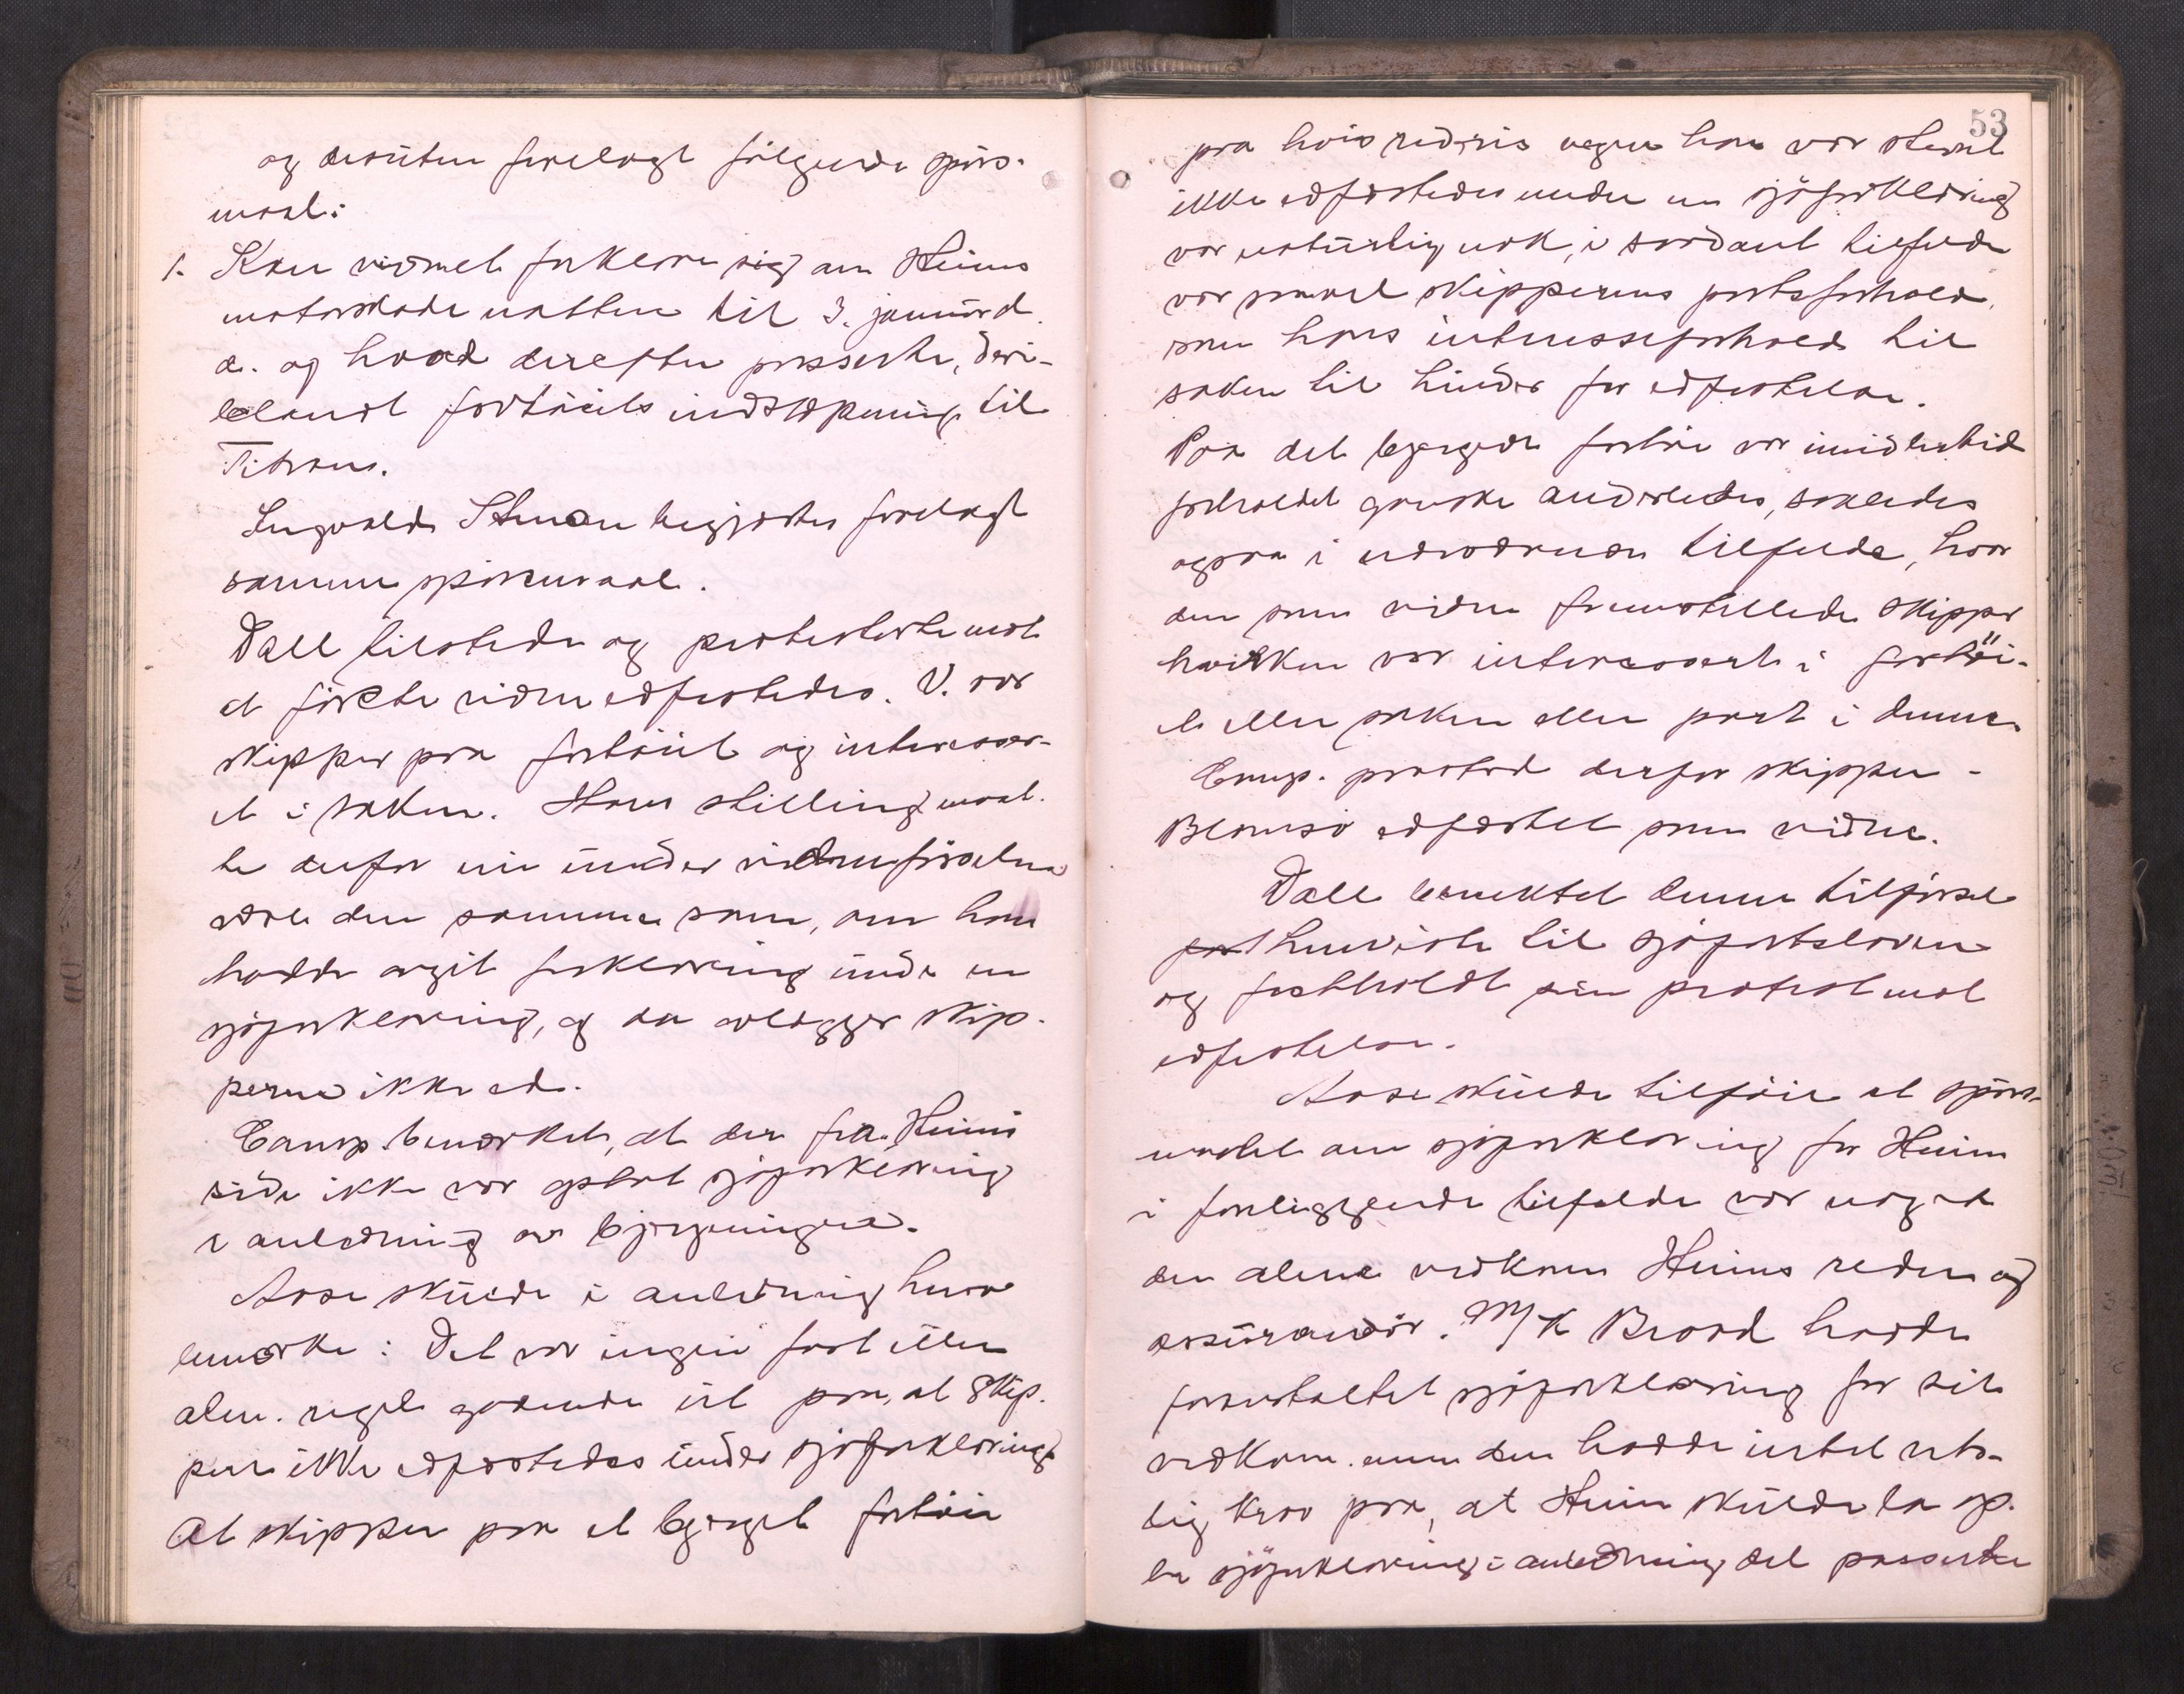 og desuten forelagt følgende spørs-
maal:
1. Kan vidnet forklare sig om Heims
motorskade natten til 3. januar d.
a. og hvad derefter passerte, deri-
blandt fartøiets indslæpning til
Titran.
Ingvald Stenøen begjærtes forelagt
samme spørsmaal.
Dall tilstede og protesterte mot
at første vidne edfestedes. V. var
skipper paa fartøiet og interesser-
et i saken. Hans stilling maat-
te derfor nu under vidneførselen
være den samme som, om han
hadde avgit forklaring under en
sjøforklaring, og da avlægger skip-
perne ikke ed.
Camp. bemerket, at der fra Heims
side ikke var optat sjøforklaring
i anledning av bjergningen.
Aase skulde i anledning herav
bemerke: Det var ingen fast eller
alm. regel gaaende ut paa, at skip-
pere ikke edfæstedes under sjøforklaring.
At skipper paa et bjerget fartøi
53
paa hvis rederis vegne han var stevnet
ikke edfæstedes under en sjøforklaring
var naturlig nok, i saadant tilfælde
var saavel skipperens partsforhold,
som hans interesseforhold til
saken til hinder for edfestelse.
Paa det bjergede fartøi var imidlertid
forholdet ganske anderledes, saaledes
ogsaa i nærværende tilfælde, hvor
den som vidne fremstillede skipper
hverken var interessert i fartøi-
et eller saken eller part i denne.
Camp. paastod derfor skipper
Blomsø edfæstet som vidne.
Dall benektet denne tilførsel
henviste til sjøfartsloven
og fastholdt sin protest mot
edfestelse.
Aase skulde tilføie at spørs-
maalet om sjøforklaring for Heim
i foreliggende tilfælde var noget
der alene vedkom Heims reder og
assurandør. M/K Brand hadde
foranstaltet sjøforklaring for sit
vedkom. men den hadde intet rets-
lig krav paa, at Heim skulde la op-
ta sjøforklaring i anledning det passerte